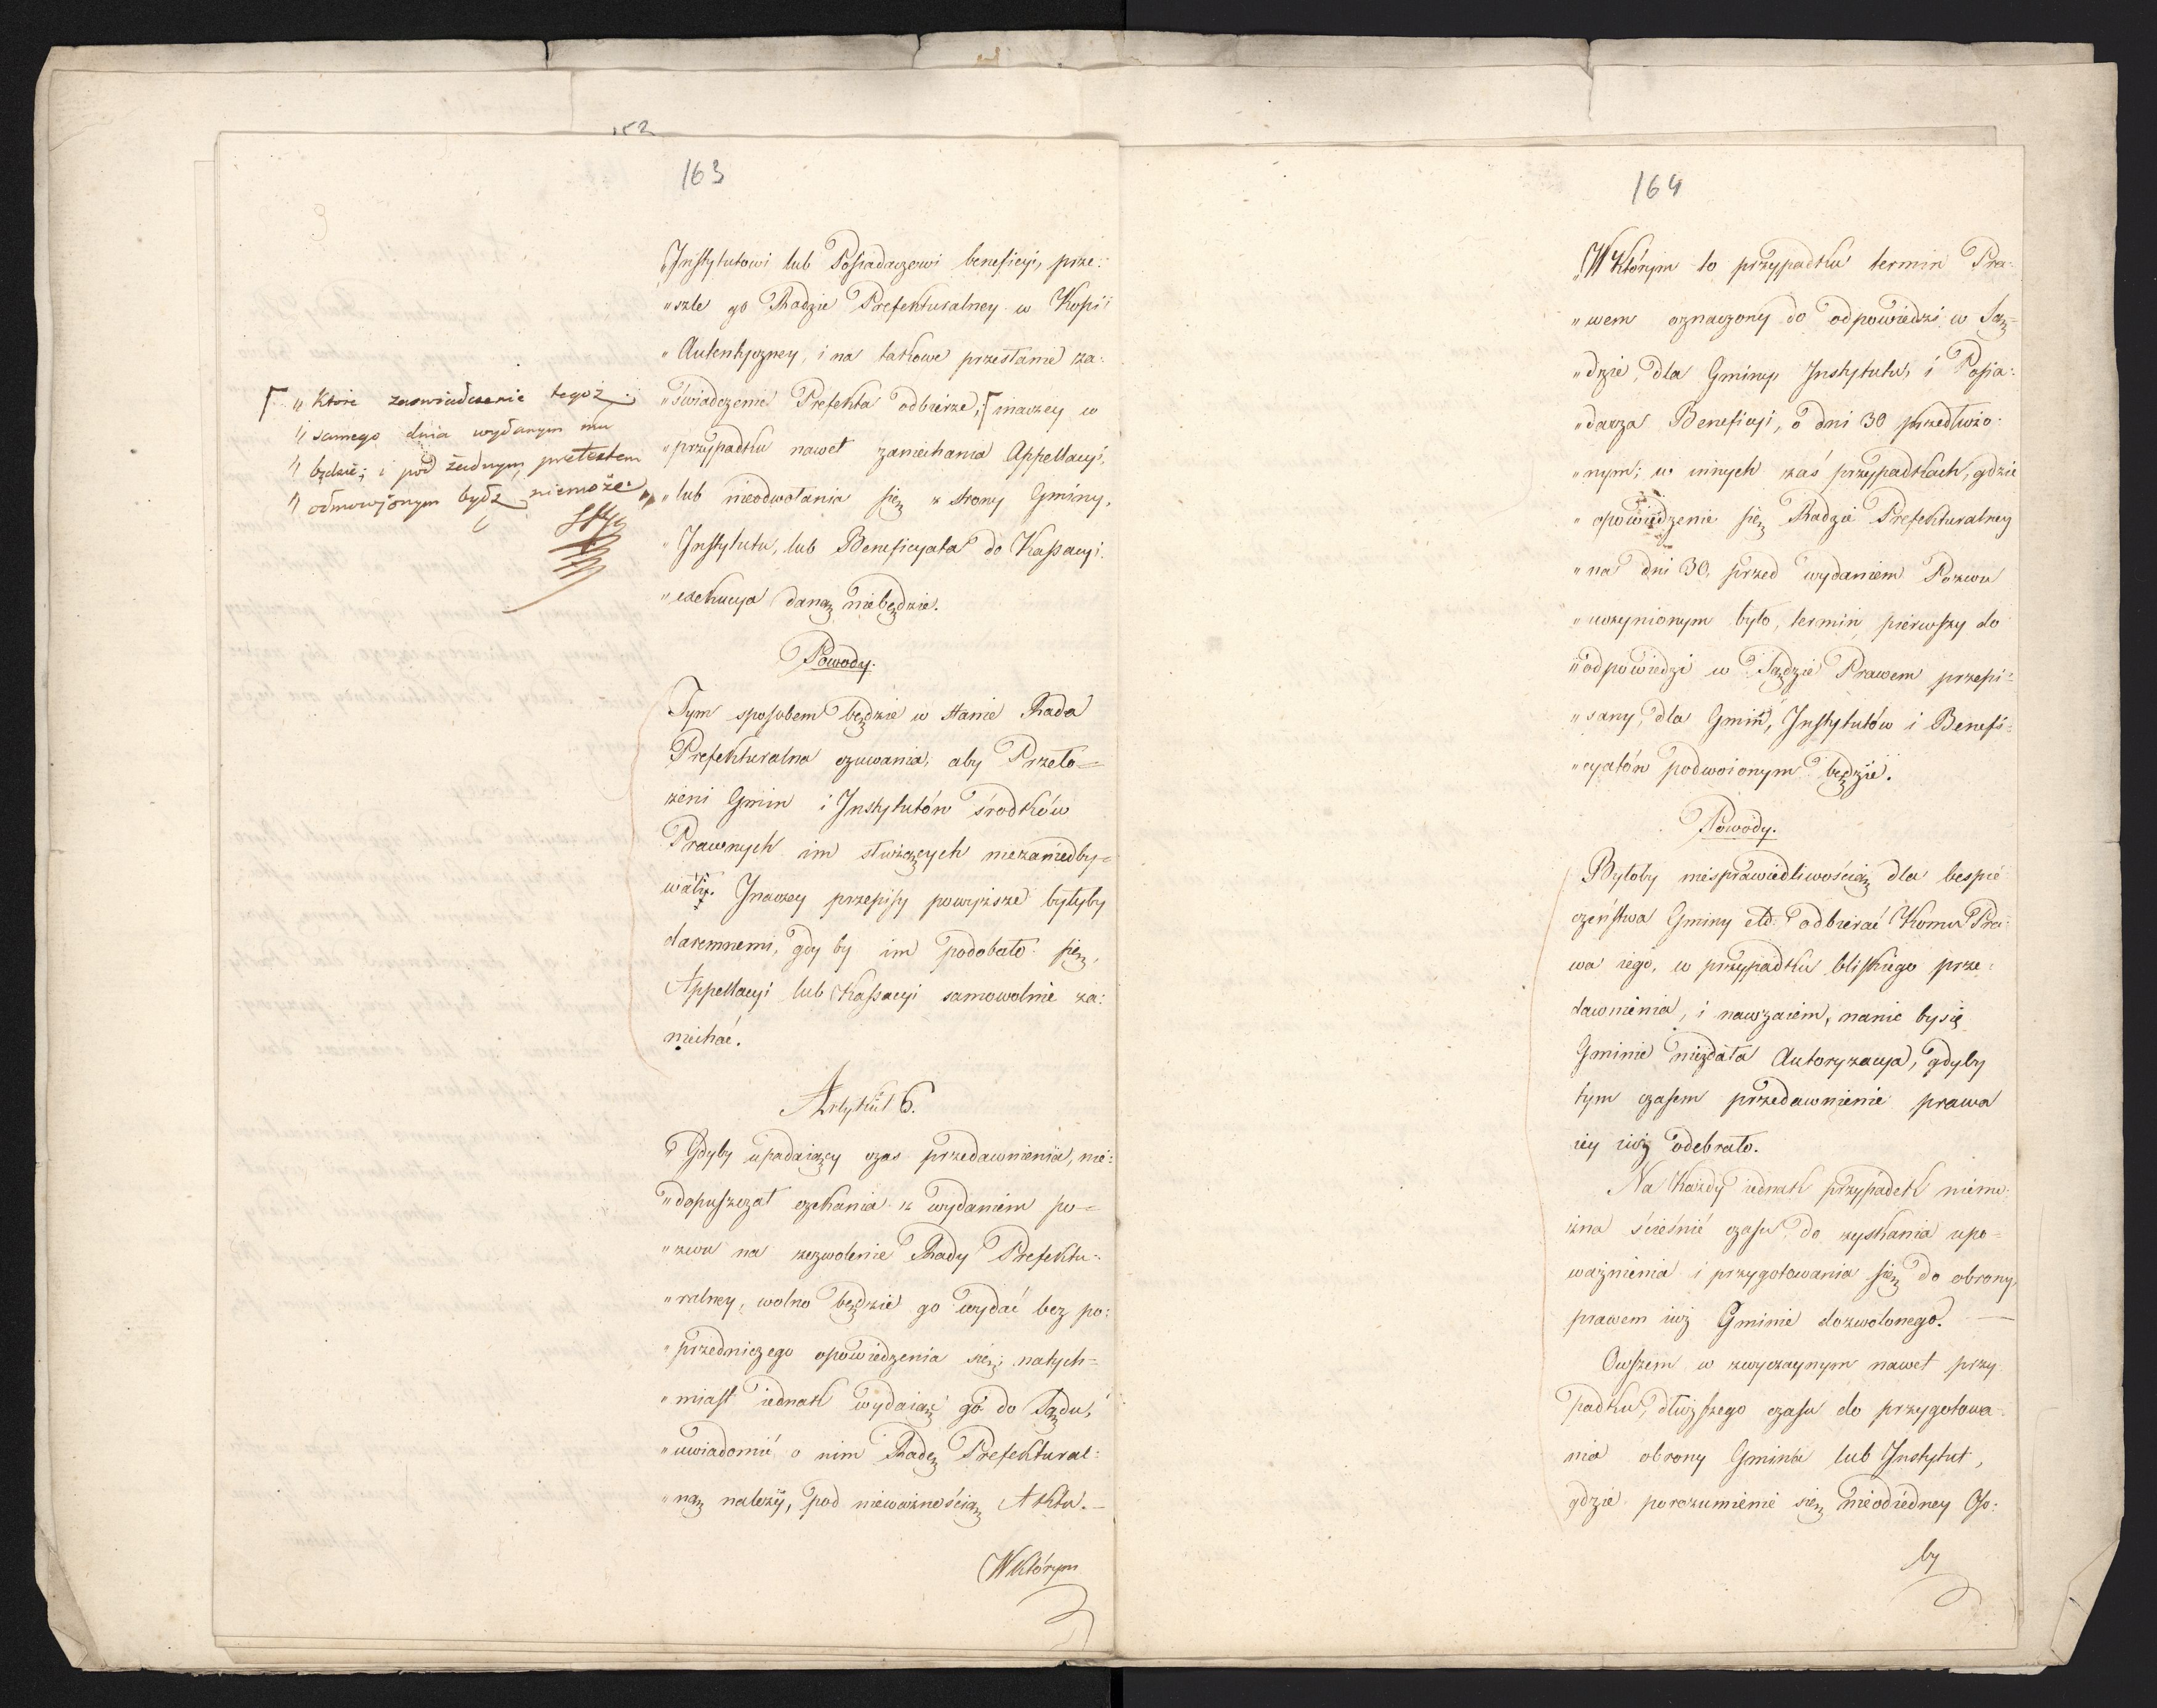 152
163
„Instytutowi lub Possiadaczowi beneficyi, prze:
„szle go Radzie Prefekturalney w Kopii
„Autentyczney, i na takowe przesłanie za:
„świadczenie Prefekta odbierze, ⌈ inaczey w
„przypadku nawet zaniechania Appellacyi,
„lub nieodwołania się z strony Gminy,
„Instytutu, lub Beneficyata do Kassacyi.
„exekucya daną niebędzie.
⌈ „Które zaswiadczenie tegoż
„samego dnia wydanym mu
„będzie; i pod żadnym pretextem
„odmowionym bydz niemoże. „
Powody.
Tym sposobem będzie w stanie Rada
Prefekturalna czuwania, aby Przeło=
żeni Gmin i Instytutów środków
Prawnych im służących niezaniedby=
wali. Inaczey przepisy powyższe byłyby
daremnemi, gdy by im podobało się,
Appellacyi lub Kassacyi samowolnie za:
niechać.
Artykuł 6.
„Gdyby upadaiący czas przedawnienia, nie:
„dopuszczał czekania z wydaniem po=
„zwu na zezwolenie Rady Prefektu:
„ralney, wolno będzie go wydać bez po:
„przedniczego opowiedzenia się; natych=
„miast iednak wydaiąc go do Sądu,
„uwiadomić o nim Radę Prefektural:
„ną należy, pod nieważnością Aktu.—
W którym
164
„W którym to przypadku termin Pra:
„wem oznaczony do odpowiedzi w Są=
„dzie, dla Gminy Instytutu, i Possia:
„dacza Beneficyi, o dni 30 przedłużo:
„nym; w innych zaś przypadkach, gdzie
„opowiedzenie się Radzie Prefekturalney
„na dni 30, przed wydaniem Pozwu
„uczynionym było, termin pierwszy do
„odpowiedzi w Sądzie Prawem przepi=
„sany, dla Gmin, Instytutów i Benefi=
„cyatów podwoionym będzie.
Powody.
Byłoby niesprawiedliwością dla bespie
czeństwa Gminy etd. odbierać Komu Pra:
wa iego, w przypadku bliskiego prze:
dawnienia, i nawzaiem, nanic by się
Gminie niezdała Autoryzacya, gdyby
tym czasem przedawnienie prawa
iey iuż odebrało.
Na każdy iednak przypadek niemo:
żna ścieśnić czasu do zyskania upo=
ważnienia i przygotowania się do obrony,
prawem iuż Gminie dozwolonego. —
Owszem w zwyczaynym nawet przy
padku, dłuższego czasu do przygotowa=
nia obrony Gmina lub Instytut,
gdzie porozumienie się nieodiedney Oso:
by